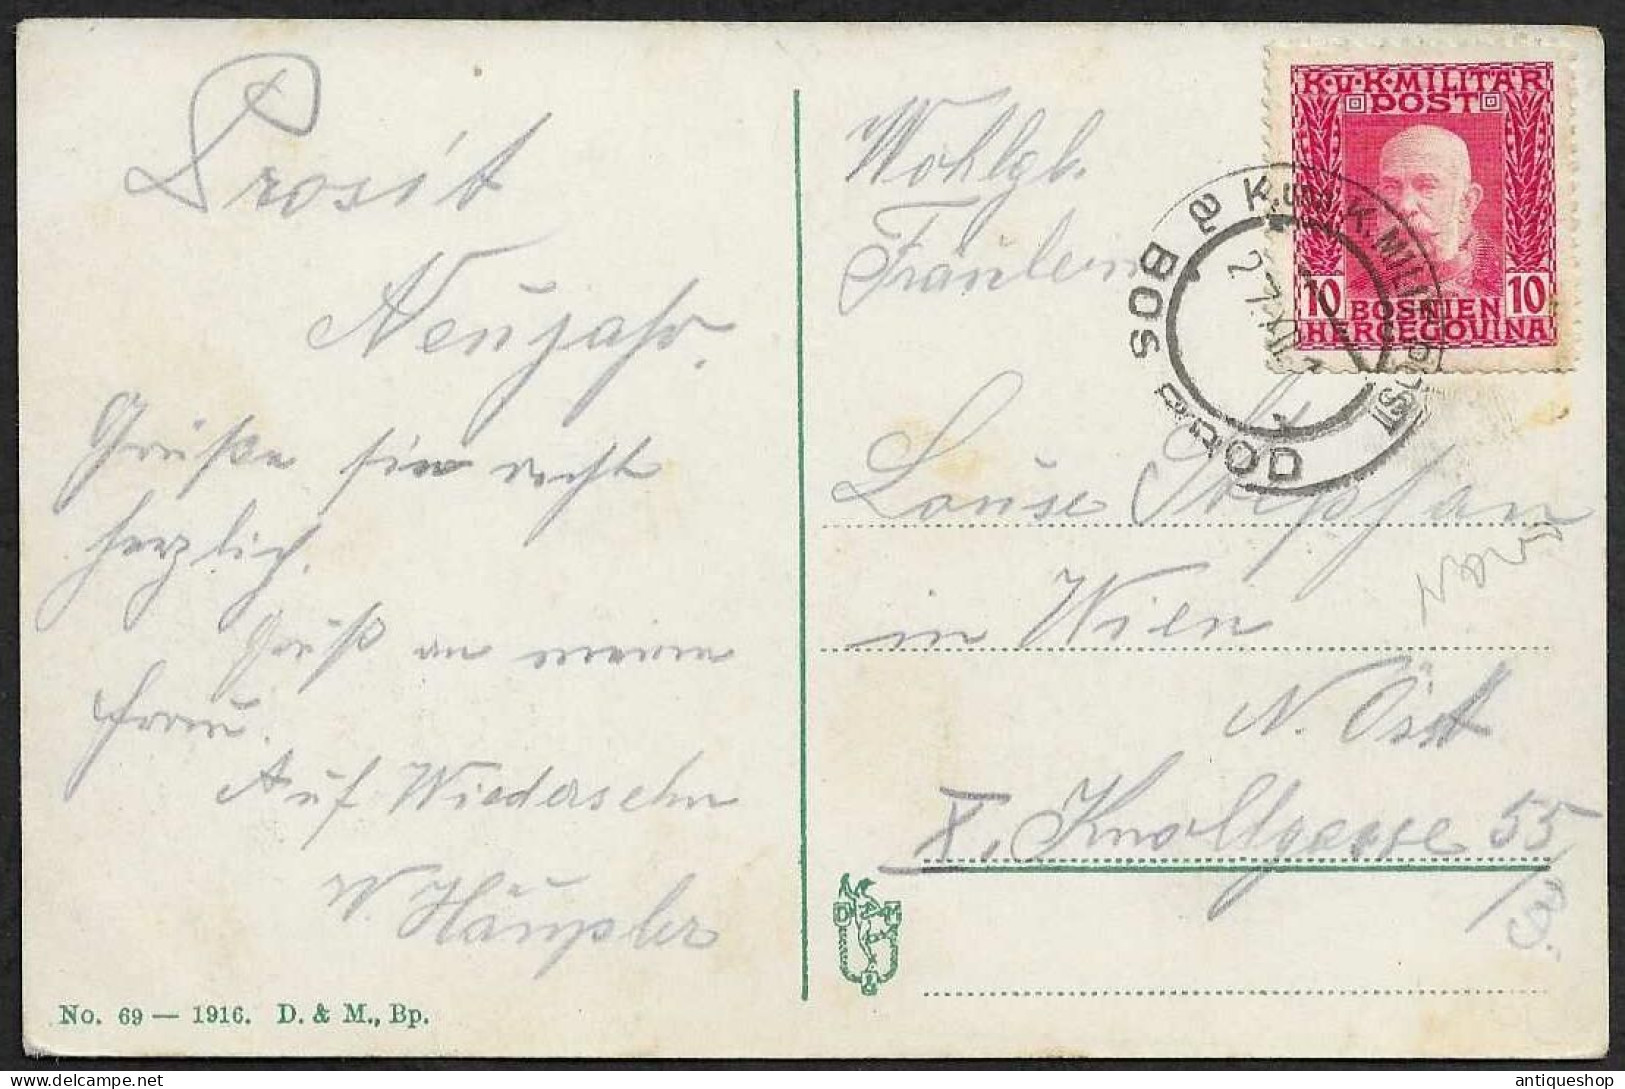 Prosit
Neujahr.
Grüße Sie recht
herzlich.
Gruß an meine
Frau.
Auf Wiedersehn
W. Häupler
No. 69 — 1916. D. & M., Bp.
Wohlgb.
Fräulein
Louise Stephan
in Wien
N. Öst
X. Knollgasse 55/
K.u.K. MILITÄR
POST
10 10
BOSNIEN
HERCEGOVINA
K.u.K. MILIT. POST
BOS BROD
D M
antiqueshop